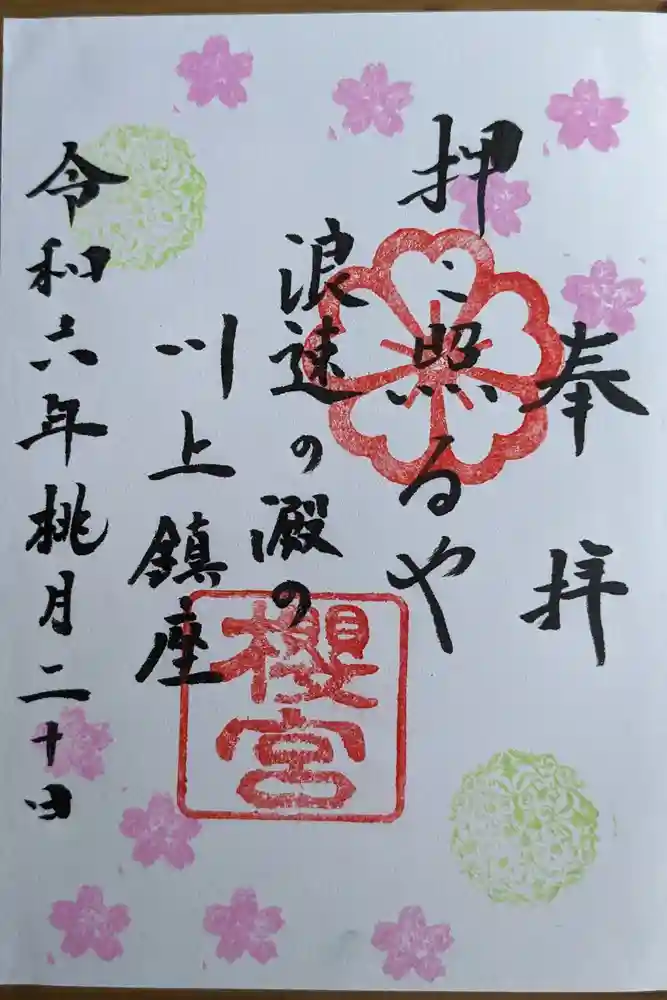 奉拝
押し照るや
浪速の澱の
川上鎮座
令和六年桃月二十日
櫻宮